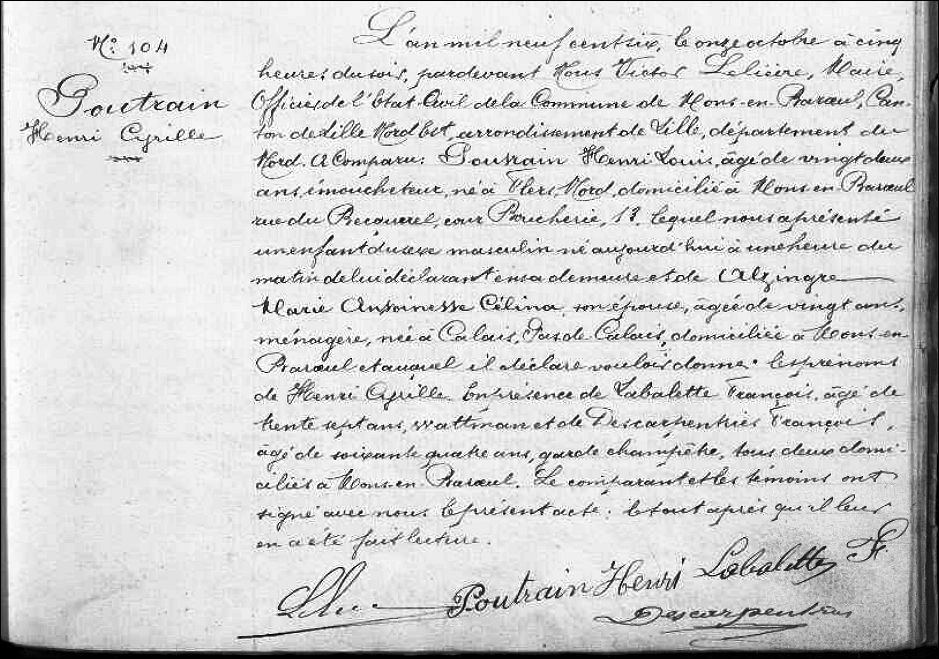 N.º 104
Poutrain
Henri Cyrille
L'an mil neuf cent six, le onze octobre à cinq
heures du soir, pardevant Nous Victor Lelièvre, Maire,
Officier de l'Etat Civil de la Commune de Mons-en-Barœul, Can-
ton de Lille Nord Est, arrondissement de Lille, département du
Nord. A Comparu: Poutrain Henri Louis, âgé de vingt deux
ans, émoucheteur, né à Flers, Nord, domicilié à Mons en Barœul
rue du Becquerel, cour Boucherie, 13, lequel nous a présenté
un enfant du sexe masculin né aujourd'hui à une heure du
matin de lui déclarant en sa demeure et de Alzingre
Marie Antoinette Célina, son épouse, âgée de vingt ans,
ménagère, née à Calais, Pas de Calais, domiciliée à Mons-en-
Barœul et auquel il déclare vouloir donner les prénoms
de Henri Cyrille. En présence de Labalette François, âgé de
trente sept ans, wattman et de Descarpentries François,
âgé de soixante quatre ans, garde champêtre, tous deux domi-
ciliés à Mons-en-Barœul. Le comparant et les témoins ont
signé avec nous le présent acte; le tout après qu'il leur
en a été fait lecture.
Poutrain Henri Labalette F
Descarpentries